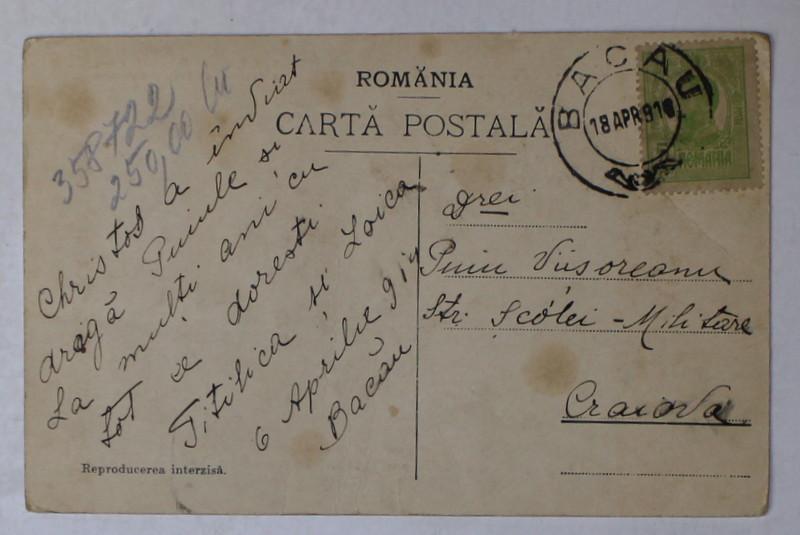 ROMÂNIA
CARTĂ POSTALĂ
BACAU
18 APR 910
ROMANIA
358722
250,00 Lu
Christos a înviat
dragă Puiule si
La mulți ani cu
tot ce dorești.
Titilica și Loica
6 Aprilie 91
Bacău
Reproducerea interzisă.
Drei
Puiu Viisoreanu
Str. Scólei - Militare
Craiova